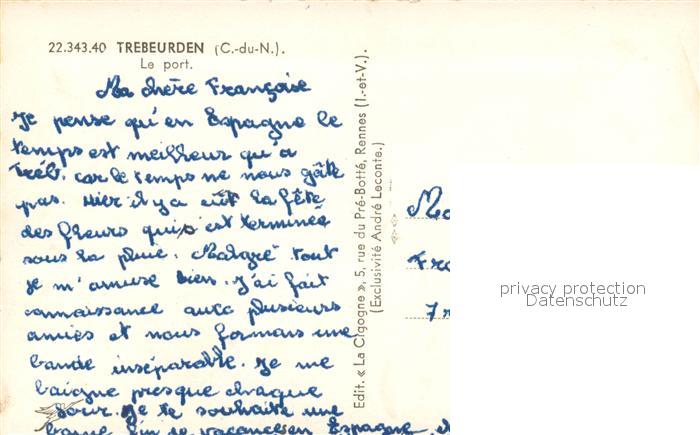 22.343.40 TREBEURDEN (C.-du-N.).
Le port.
Ma chère Françoise
Je pense qu'en Espagne le
temps est meilleur qu'a
Tréb. car le temps ne nous gâte
pas. Hier il y a eût la fête
des fleurs qui s'est terminée
sous la pluie. Malgré tout
je m'amuse bien. J'ai fait
connaissance avec plusieurs
amies et nous formons une
bande inséparable. Je me
baigne presque chaque
jour. Je te souhaite une
bonne fin de vacances en Espagne
Edit. « La Cigogne », 5, rue du Pré-Botté, Rennes (I.-et-V.).
(Exclusivité André Leconte.)
privacy protection
Datenschutz